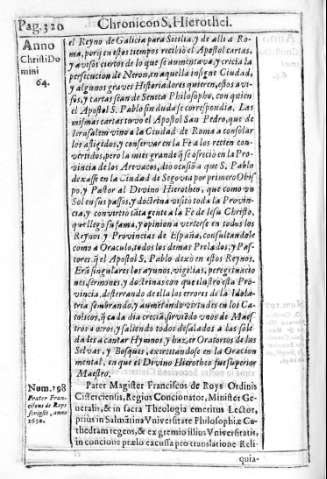 Pag.320 Chronicon S. Hierothei.
Anno
Christi Do
mini
64.
el Reyno de Galicia para Sicilia, y de alli a Ro-
ma, porq; en estos tiempos recibiò el Apostol cartas,
y avisos ciertos de lo que se aumentava, y crecia la
persecucion de Neron, en aquella insigne Ciudad,
y algunos graves Historiadores quieren, estos avi-
sos, y cartas eran de Seneca Philosopho, con quien
el Apostol S. Pablo sin duda se correspondia. Las
mismas cartas tuvo el Apostol San Pedro, que de
Ierusalem vino a la Ciudad de Roma a consolar
los afligidos, y conservar en la Fè a los recien con-
vertidos, pero la mies grande q̃ se ofreciò en la Pro-
vincia de los Arevacos, diò ocasiõ a que S. Pablo
dexasse en la Ciudad de Segovia por primero Obis-
po, y Pastor al Divino Hierotheo, que como un
Sol en sus passos, y doctrina visitò toda la Provin-
cia, y convirtiò tãta gente a la Fè de Iesu Christo,
que llegò su fama, y opinion a verterse en todos los
Reynos y Provincias de España, consultandole
como a Oraculo, todos los demas Prelados, y Pas-
tores, q̃ el Apostol S. Pablo dexò en estos Reynos.
Erã singulares los ayunos, vigilias, peregrinacio
nes, sermones, y doctrinas con que ilustrò esta Pro
vincia, desterrando de ella los errores de la Idola-
tria sembrando, y aumentando virtudes en los Ca-
tolicos, q̃ cada dia crecia
tros a otros, y saliendo todos desalados a las sole
dades a cantar Hymnos, y hazer Oratorios de las
Selvas, y Bosques, exercitandose en la Oracion
mental, en que el Divino Hierotheo fue superior
Maestro.
Num.198
Frater Fran-
ciscus de Roys
scripsit, anno
1650.
Pater Magister Franciscus de Roys Ordinis
Cisterciensis, Regius Concionator, Minister Ge-
neralis, & in sacra Theologia emeritus Lector,
prius in Salmãtina Vniversitate Philosophiæ Ca-
thedram regens, & ex gremio illius Vniversitatis,
in concione prælo excussa pro translatione Reli-
quia-